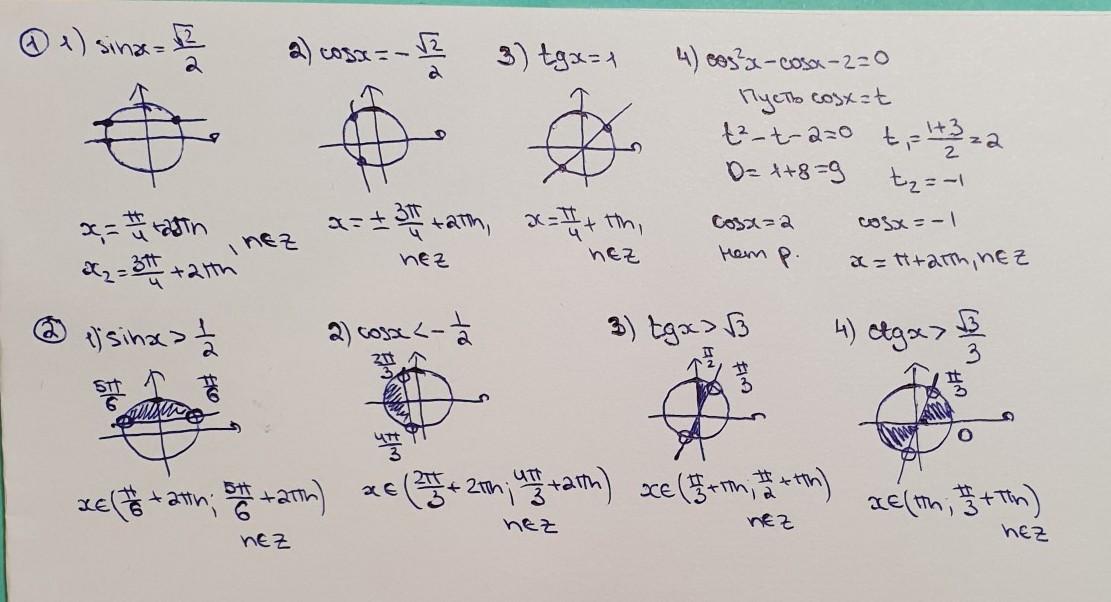 ① 1) sinx = √2/2
x₁ = π/4 + 2πn
x₂ = 3π/4 + 2πn
, n∈Z
2) cosx = -√2/2
x = ± 3π/4 + 2πn,
n∈Z
3) tgx = 1
x = π/4 + πn,
n∈Z
4) cos²x - cosx - 2 = 0
Пусть cosx = t
t² - t - 2 = 0
D = 1+8 = 9
t₁ = (1+3)/2 = 2
t₂ = -1
cosx = 2
нет р.
cosx = -1
x = π + 2πn, n∈Z
② 1) sinx > 1/2
5π/6 π/6
x∈(π/6 + 2πn; 5π/6 + 2πn)
n∈Z
2) cosx < -1/2
2π/3
4π/3
x∈(2π/3 + 2πn; 4π/3 + 2πn)
n∈Z
3) tgx > √3
π/2 π/3
x∈(π/3 + πn; π/2 + πn)
n∈Z
4) ctgx > √3/3
π/3
0
x∈(πn; π/3 + πn)
n∈Z